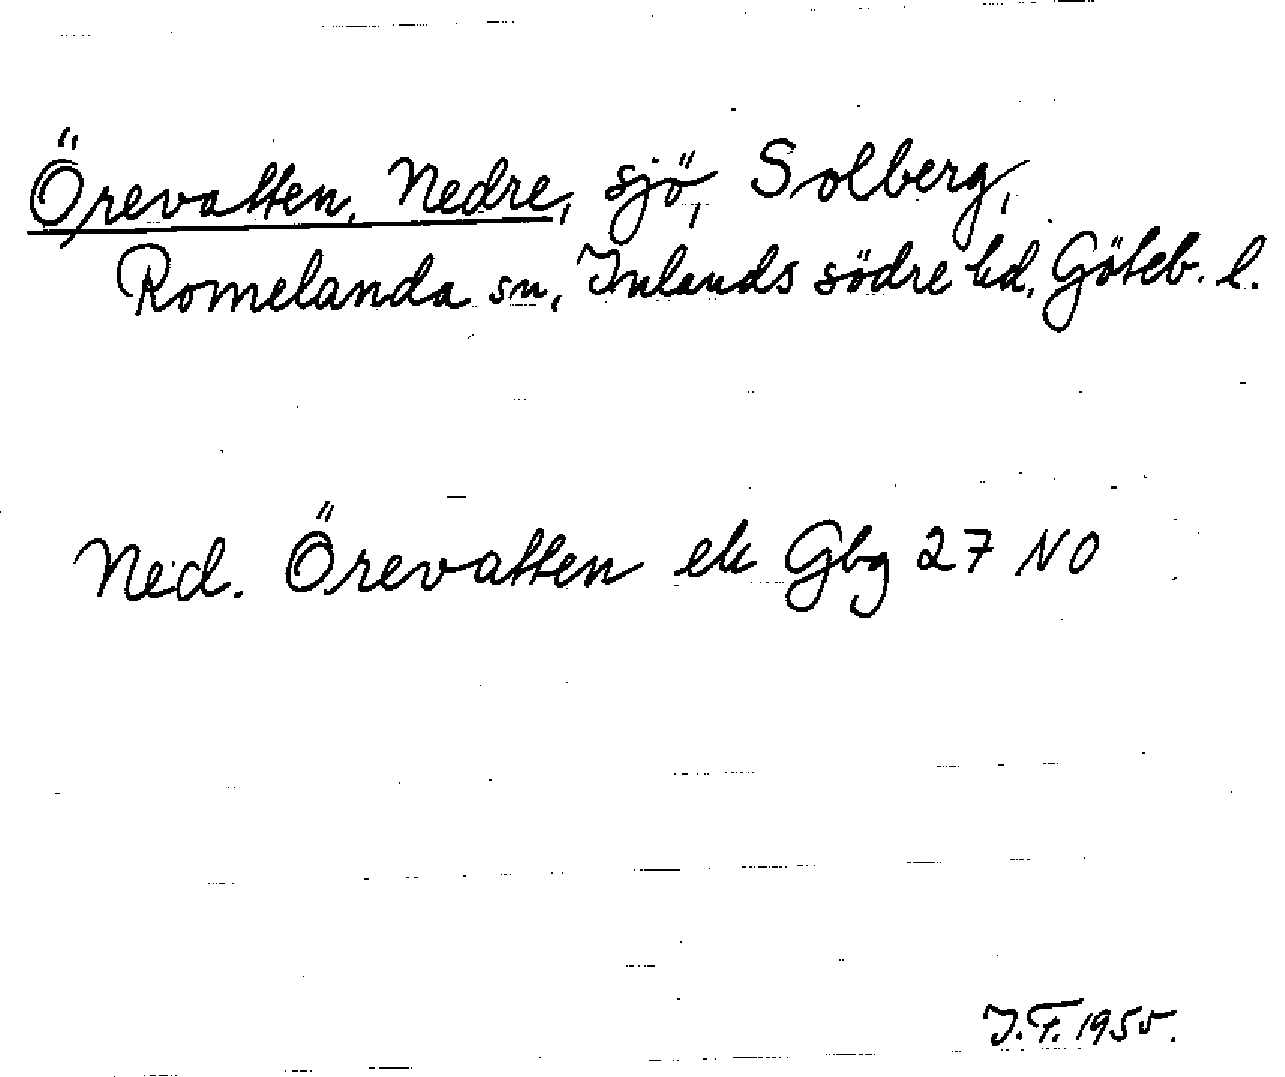 Örevatten, Nedre, sjö, Solberg,
Romelanda sn, Inlands södre hd, Göteb. l.
Ned. Örevatten ek Gbg 27 NO
I.F. 1955.